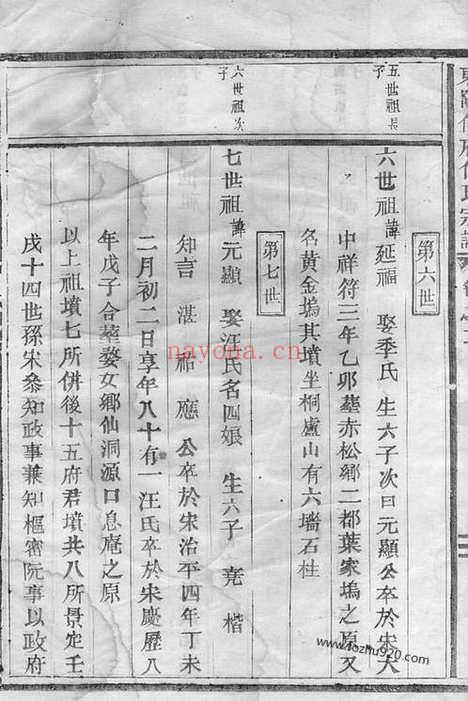 五世祖長子
第六世
六世祖諱延福 娶季氏 生六子次曰元顯公卒於宋大
中祥符三年乙卯塟赤松鄉二都葉家塢之原又
名黃金塢其墳坐桐廬山有六墻石柱
六世祖次子
第七世
七世祖諱元顯 娶汪氏名四娘 生六子 堯 楷
知言 湛 祐 應 公卒於宋治平四年丁未
二月初二日享年八十有一汪氏卒於宋慶歷八
年戊子合塟婺女鄉仙洞源口息庵之原
以上祖墳七所併後十五府君墳共八所景定壬
戌十四世孫宋叅知政事兼知樞密院事以政府
nayona.cn
www.fozhu920.com